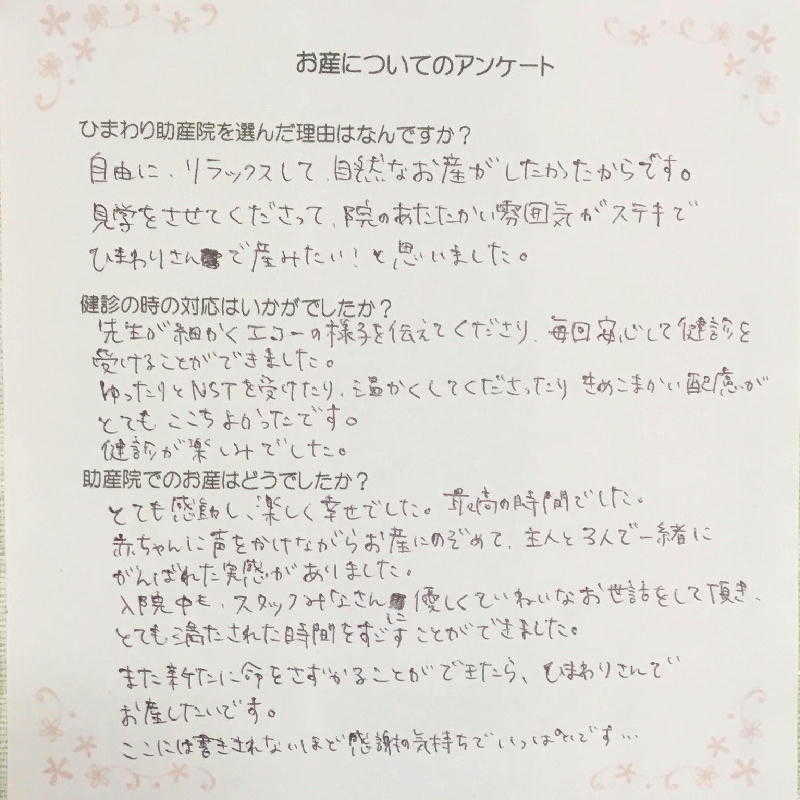 お産についてのアンケート
ひまわり助産院を選んだ理由はなんですか？
自由に、リラックスして、自然なお産がしたかったからです。
見学をさせてくださって、院のあたたかい雰囲気がステキで
ひまわりさんで産みたい！と思いました。
健診の時の対応はいかがでしたか？
先生が細かくエコーの様子を伝えてくださり、毎回安心して健診を
受けることができました。
ゆったりとNSTを受けたり、温かくしてくださったりきめこまかい配慮が
とてもここちよかったです。
健診が楽しみでした。
助産院でのお産はどうでしたか？
とても感動し、楽しく幸せでした。最高の時間でした。
赤ちゃんに声をかけながらお産にのぞめて、主人と3人で一緒に
がんばれた実感がありました。
入院中も、スタッフみなさんに優しくていねいなお世話をして頂き、
とても満たされた時間をすごすことができました。
また新たに命をさずかることができたら、ひまわりさんで
お産したいです。
ここには書ききれないほど感謝の気持ちでいっぱいです…